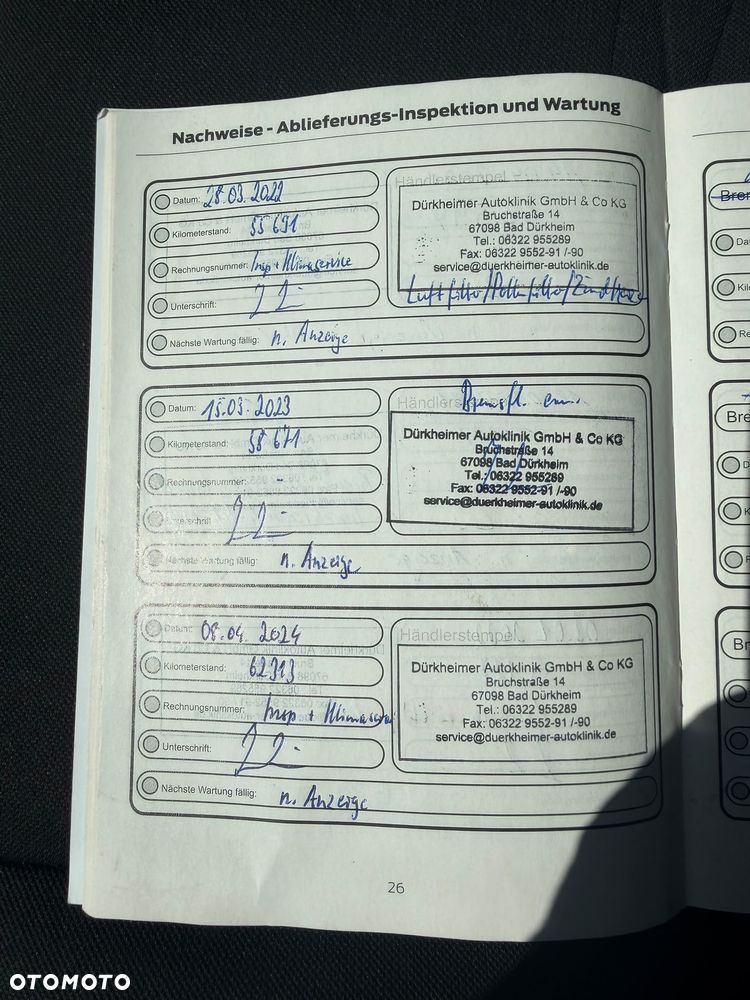 Nachweise - Ablieferungs-Inspektion und Wartung
Datum: 28.03.2022
Kilometerstand: 55 691
Rechnungsnummer: Insp + Klimaservice
Unterschrift:
Nächste Wartung fällig: n. Anzeige
Händlerstempel
Dürkheimer Autoklinik GmbH & Co KG
Bruchstraße 14
67098 Bad Dürkheim
Tel.: 06322 955289
Fax: 06322 9552-91 /-90
service@duerkheimer-autoklinik.de
Luftfilter/Pollenfilter/Zündkerzen
Datum: 15.03.2023
Kilometerstand: 58 671
Rechnungsnummer: -
Unterschrift
Nächste Wartung fällig: n. Anzeige
Händlerstempel
Bremsfl. ern.
Dürkheimer Autoklinik GmbH & Co KG
Bruchstraße 14
67098 Bad Dürkheim
Tel.: 06322 955289
Fax: 06322 9552-91 /-90
service@duerkheimer-autoklinik.de
Datum: 08.04. 2024
Kilometerstand: 62313
Rechnungsnummer: Insp + Klimaserv
Unterschrift:
Nächste Wartung fällig: n. Anzeige
Händlerstempel
Dürkheimer Autoklinik GmbH & Co KG
Bruchstraße 14
67098 Bad Dürkheim
Tel.: 06322 955289
Fax: 06322 9552-91 /-90
service@duerkheimer-autoklinik.de
26
Bre
Da
Kil
Re
Bre
D
K
R
Br
OTOMOTO